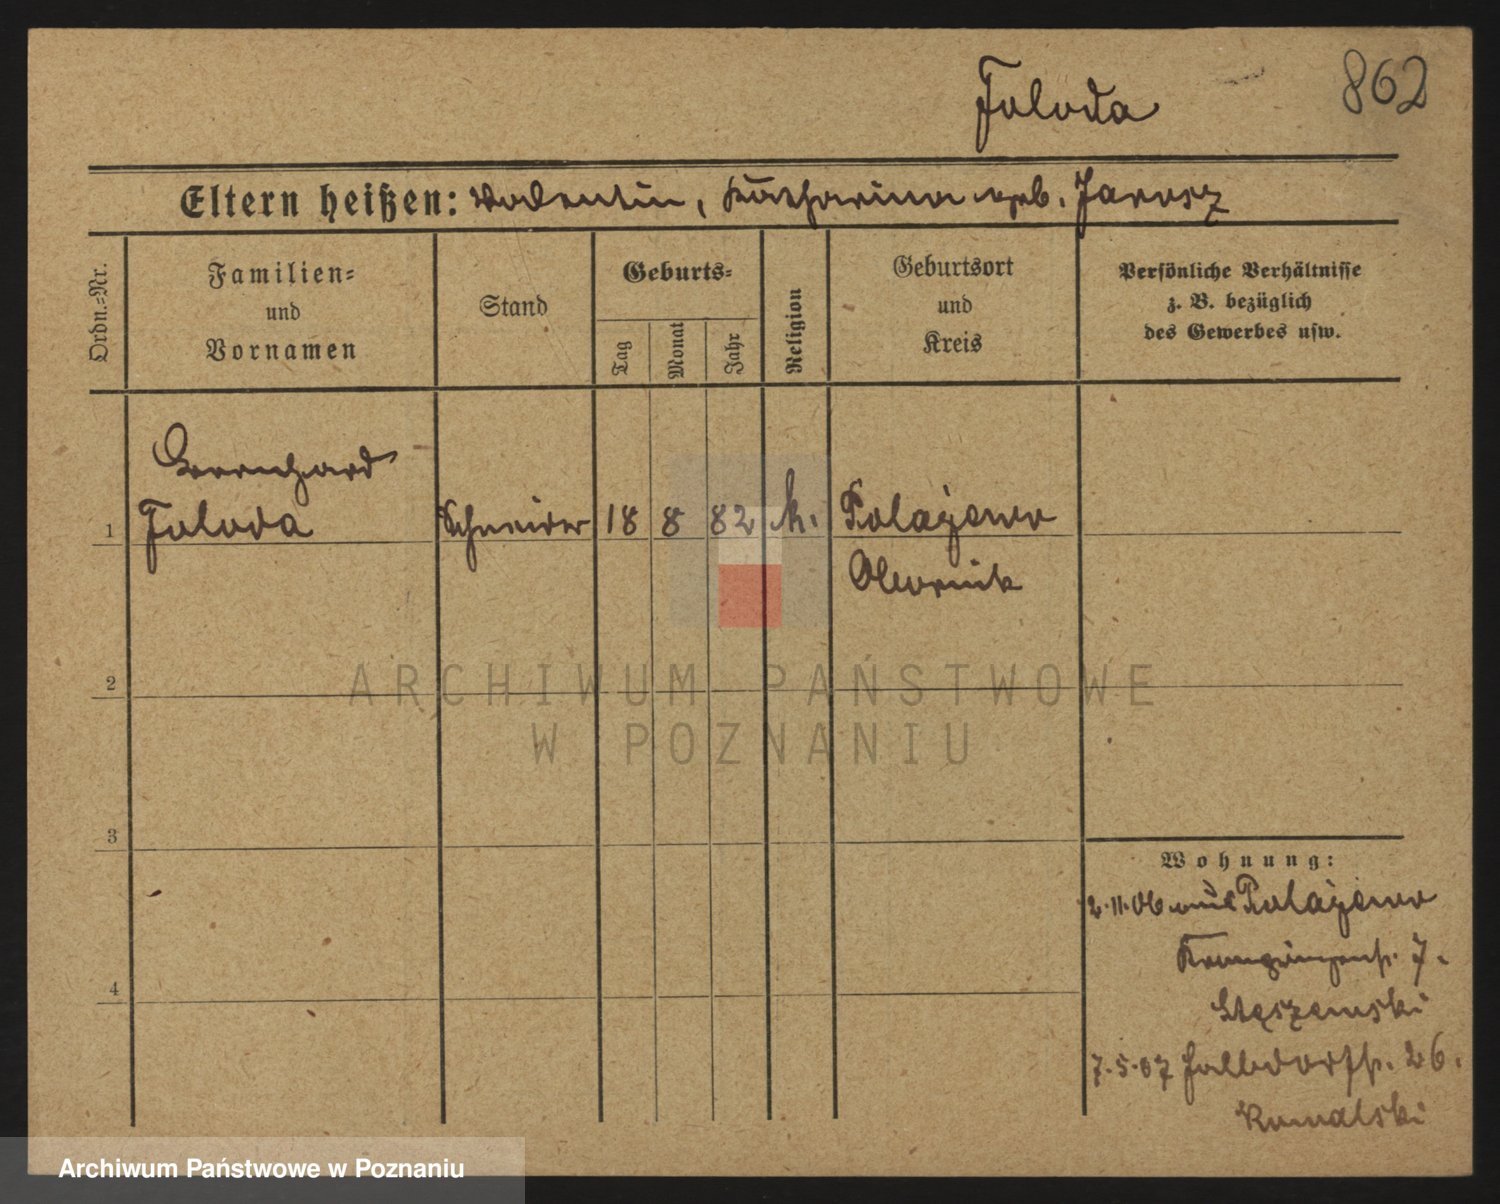 862
Foloda
Eltern heißen: Valentin, Katharina geb. Jarosz
Ordn.=Nr.
Familien=
und
Vornamen
Stand
Geburts=
Tag
Monat
Jahr
Religion
Geburtsort
und
Kreis
Persönliche Verhältnisse
z. B. bezüglich
des Gewerbes usw.
Bernhard
1 Foloda Schneider 18 8 82 k. Polajewo
Obornik
2
3
4
Wohnung:
2.11.06 aus Polajewo
7.
7.5.07 Halbdorfstr. 26.
Kowalski
ARCHIWUM PAŃSTWOWE
W POZNANIU
Archiwum Państwowe w Poznaniu